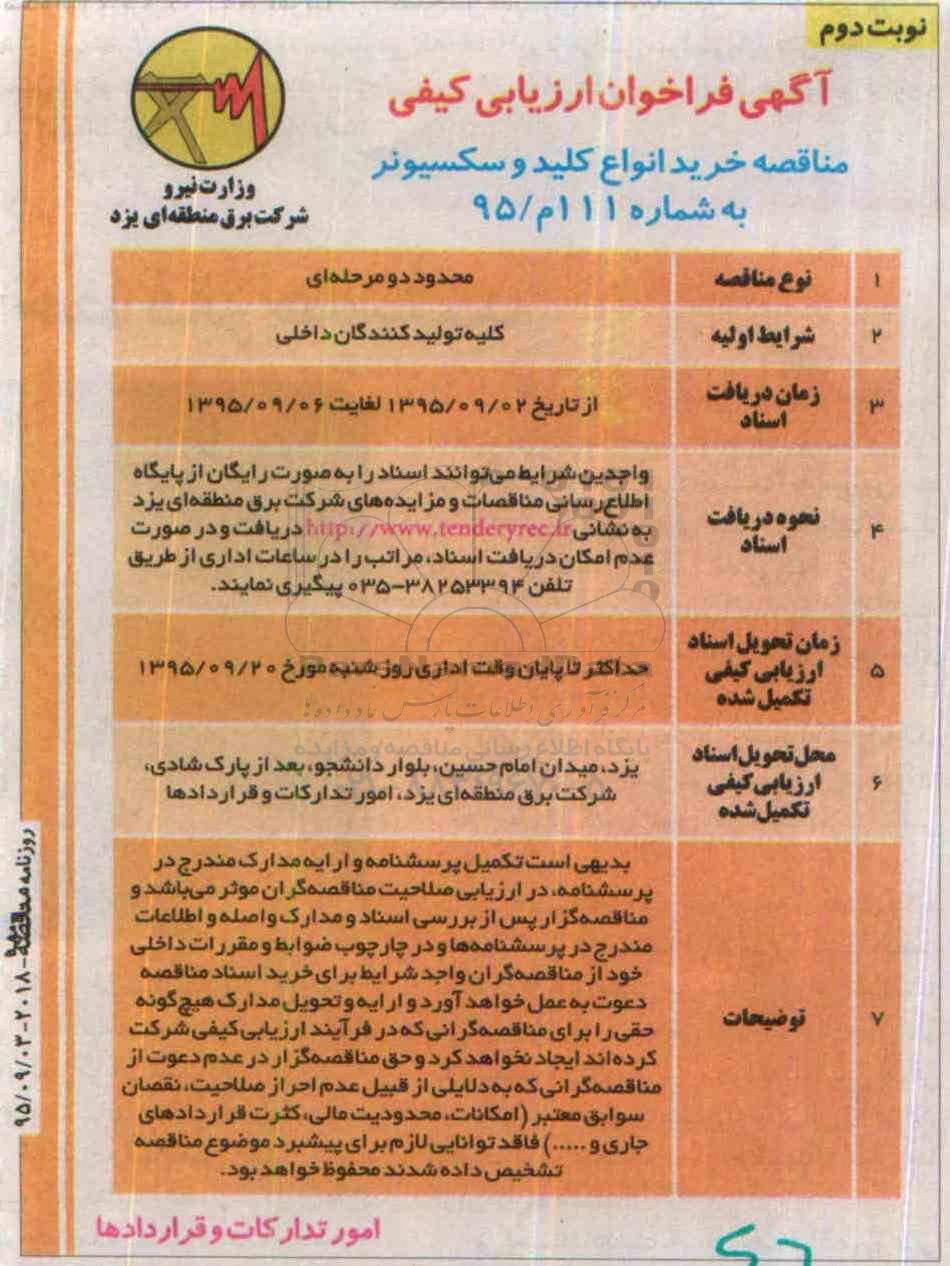 نوبت دوم
آگهی فراخوان ارزیابی کیفی
مناقصه خرید انواع کلید و سکسیونر
به شماره ۱۱۱م/۹۵
وزارت نیرو
شرکت برق منطقه‌ای یزد
۱ نوع مناقصه محدود دو مرحله‌ای
۲ شرایط اولیه کلیه تولیدکنندگان داخلی
۳ زمان دریافت
اسناد
از تاریخ ۱۳۹۵/۰۹/۰۲ لغایت ۱۳۹۵/۰۹/۰۶
۴ نحوه دریافت
اسناد
واجدین شرایط می‌توانند اسناد را به صورت رایگان از پایگاه
اطلاع‌رسانی مناقصات و مزایده‌های شرکت برق منطقه‌ای یزد
به نشانی http://www.tenderyrec.ir دریافت و در صورت
عدم امکان دریافت اسناد، مراتب را در ساعات اداری از طریق
تلفن ۳۸۲۵۳۳۹۴-۰۳۵ پیگیری نمایند.
۵ زمان تحویل اسناد
ارزیابی کیفی
تکمیل شده
حداکثر تا پایان وقت اداری روز شنبه مورخ ۱۳۹۵/۰۹/۲۰
مرکز فرآوری اطلاعات پارس نماد داده‌ها
پایگاه اطلاع رسانی مناقصه و مزایده
۶ محل تحویل اسناد
ارزیابی کیفی
تکمیل شده
یزد، میدان امام حسین، بلوار دانشجو، بعد از پارک شادی،
شرکت برق منطقه‌ای یزد، امور تدارکات و قراردادها
۷ توضیحات
بدیهی است تکمیل پرسشنامه و ارایه مدارک مندرج در
پرسشنامه، در ارزیابی صلاحیت مناقصه‌گران موثر می‌باشد و
مناقصه‌گزار پس از بررسی اسناد و مدارک واصله و اطلاعات
مندرج در پرسشنامه‌ها و در چارچوب ضوابط و مقررات داخلی
خود از مناقصه‌گران واجد شرایط برای خرید اسناد مناقصه
دعوت به عمل خواهد آورد و ارایه و تحویل مدارک هیچ‌گونه
حقی را برای مناقصه‌گرانی که در فرآیند ارزیابی کیفی شرکت
کرده‌اند ایجاد نخواهد کرد و حق مناقصه‌گزار در عدم دعوت از
مناقصه‌گرانی که به دلایلی از قبیل عدم احراز صلاحیت، نقصان
سوابق معتبر (امکانات، محدودیت مالی، کثرت قراردادهای
جاری و .....) فاقد توانایی لازم برای پیشبرد موضوع مناقصه
تشخیص داده شدند محفوظ خواهد بود.
امور تدارکات و قراردادها
روزنامه مناقصه-۲۰۱۸-۹۵/۰۹/۰۳